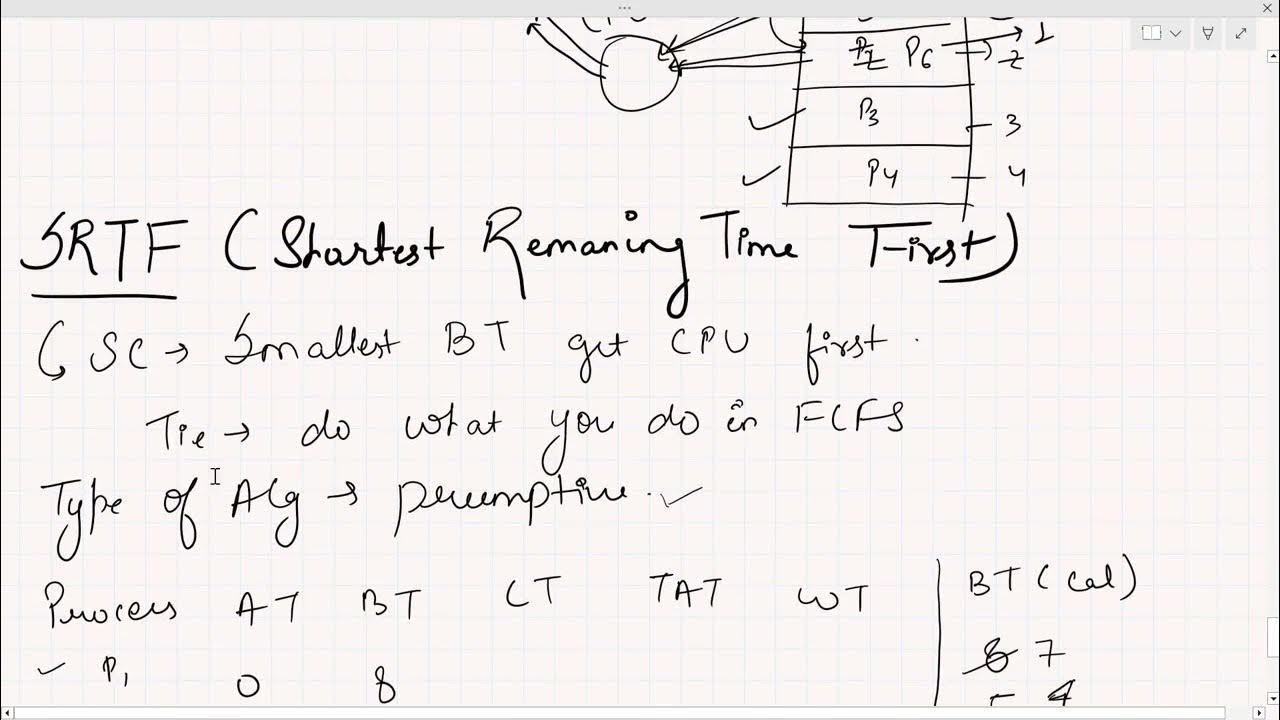 P2 P6 1
2
P3 3
P4 4
SRTF (Shortest Remaning Time First)
SC → Smallest BT get CPU first.
Tie → do what you do in FCFS
Type of Alg → preemptive.
Process AT BT CT TAT WT BT (cal)
P1 0 8 8 7
4